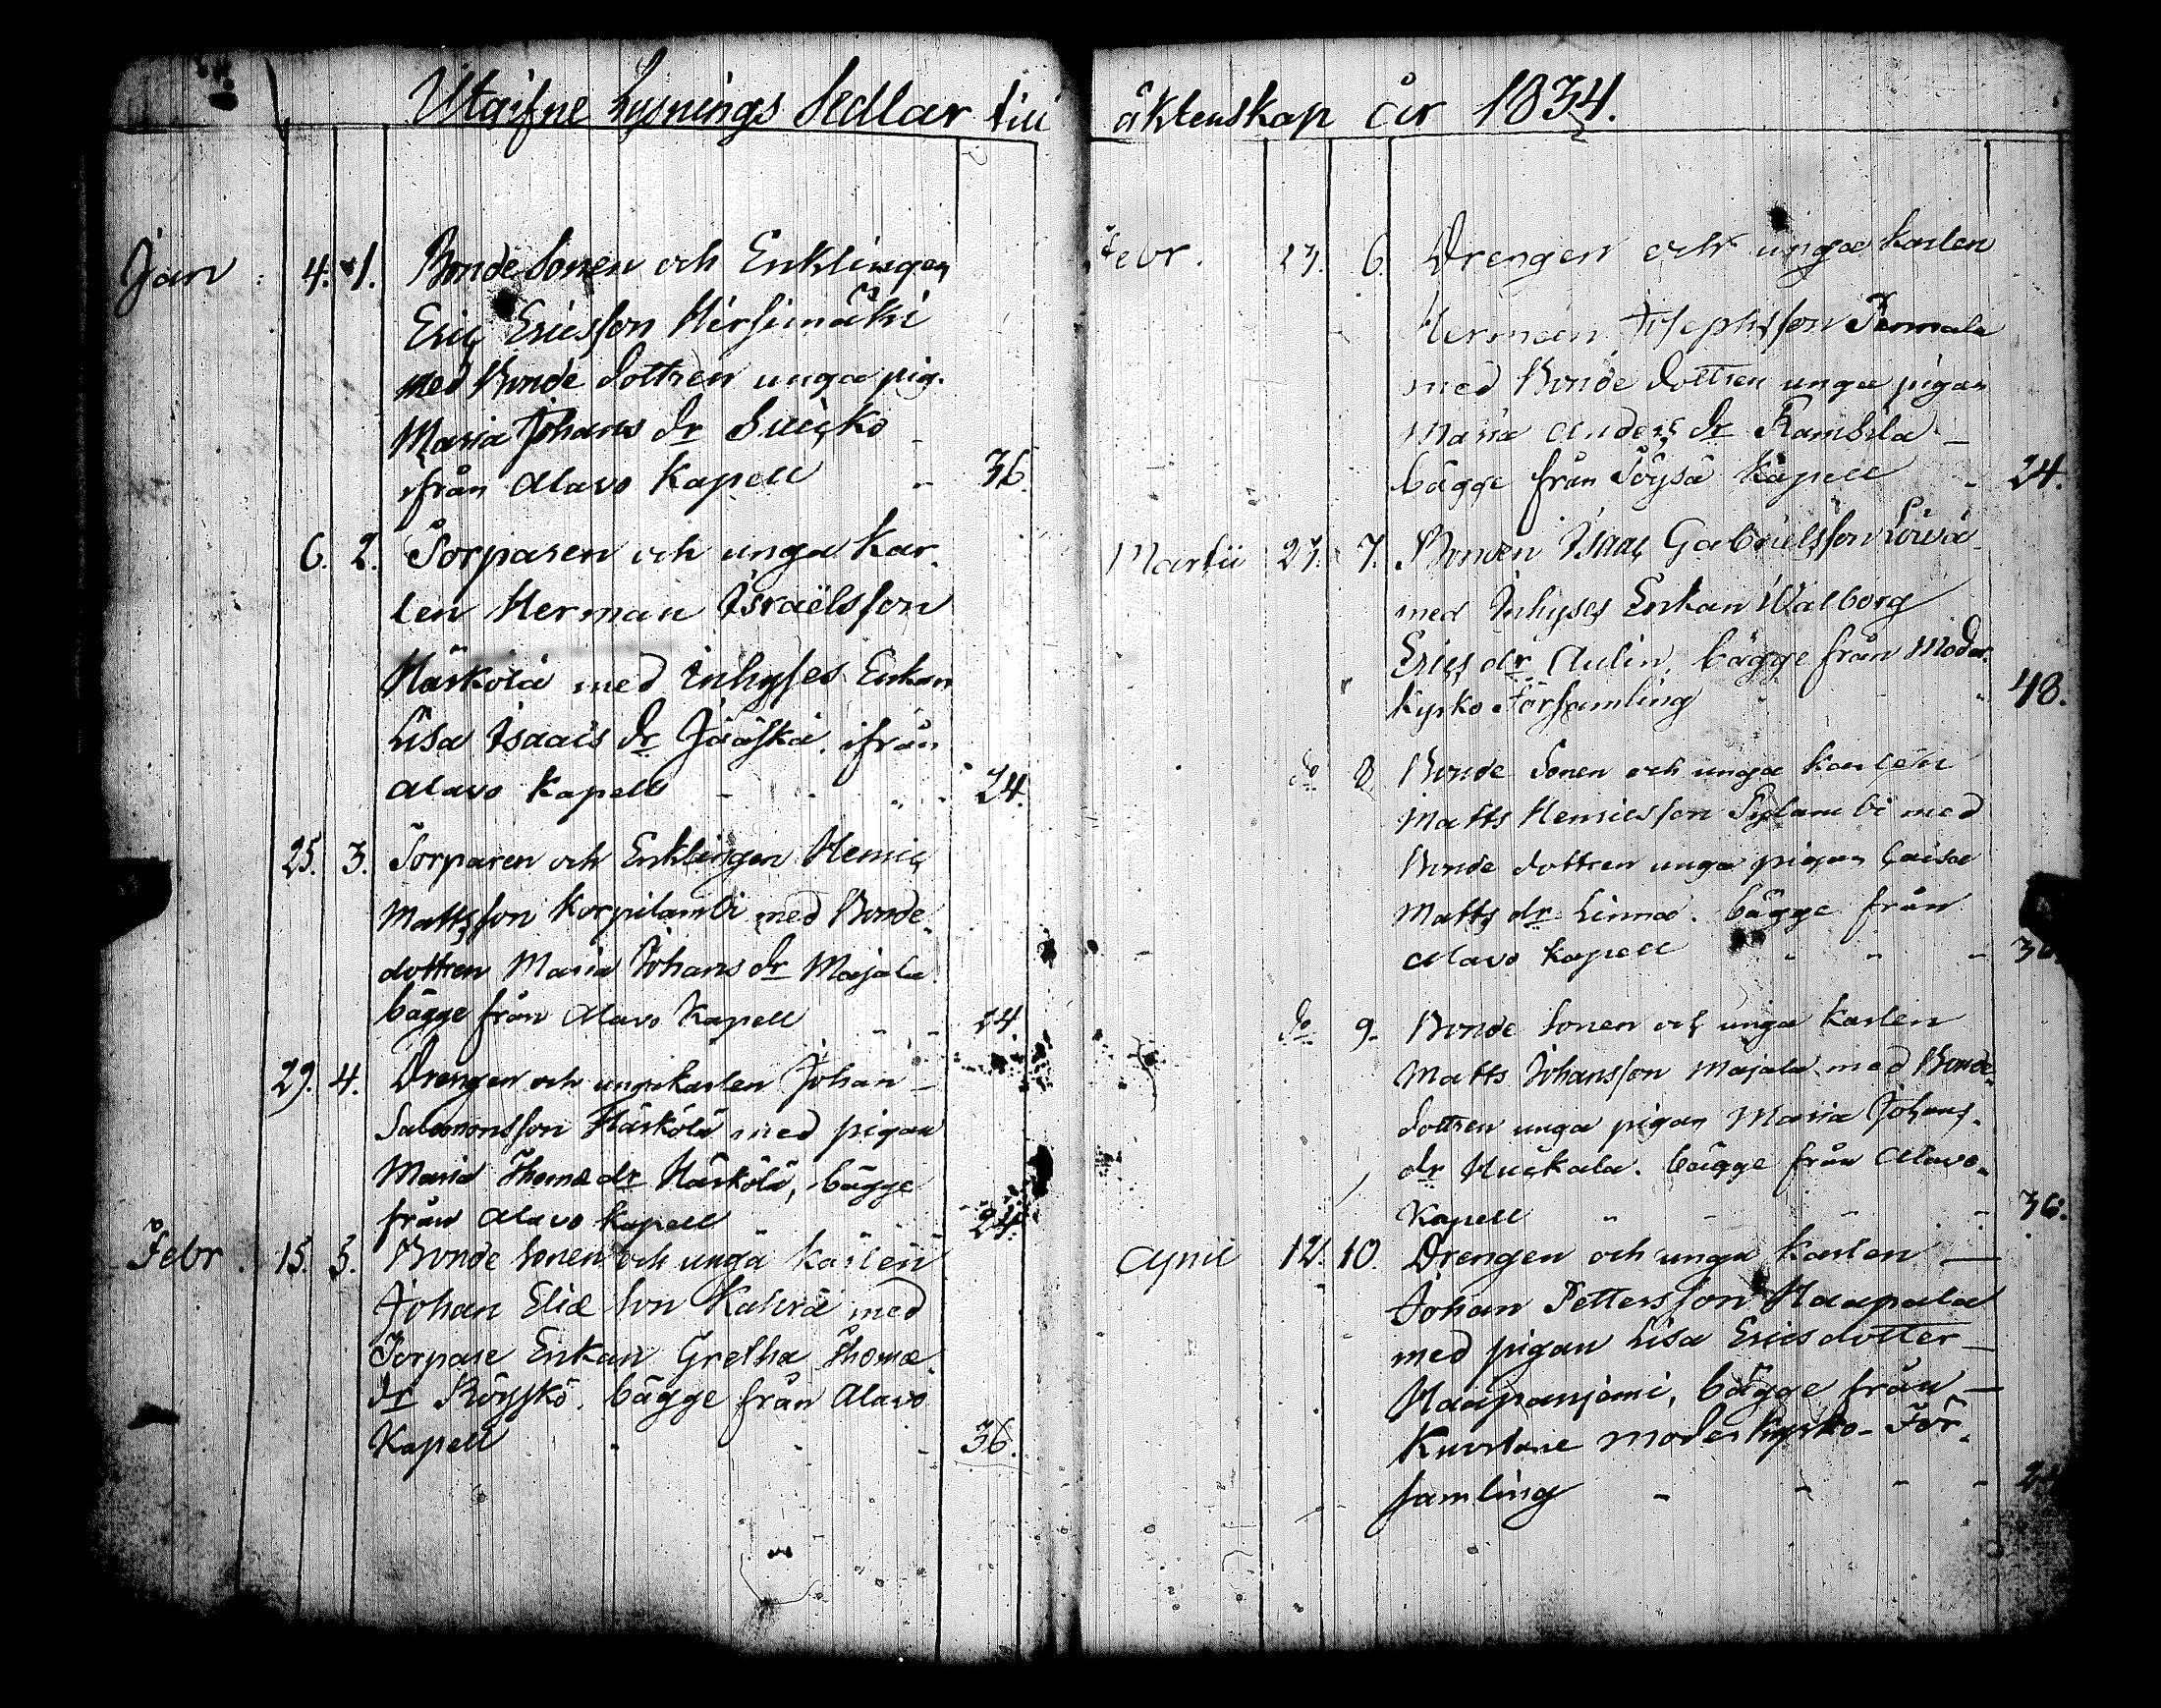 Utgifne Lysnings Sedlar till äktenskap år 1834.
Jan: 4. 1. Bonde Sonen och Enklingen
Eric Ericsson Hirsimäki
med Bonde dottren unga pig.
Maria Johans dr Suicko
ifrån Alavo Kapell - 36.
6. 2. Torparen och unga Kar-
len Herman Israëlsson
Härkölä med inhyses Enkan
Lisa Isaacs dr Jääskä. ifrån
Alavo Kapell - - " - 24.
25. 3. Torparen och Enklingen Henric
Mattsson Korpilambi med Bonde-
dottren Maria Johans dr Majala.
bägge från Alavo Kapell - - 24.
29. 4. Drengen och unga karlen Johan -
Salomonsson Härkölä med pigan
Maria Thomæ dr Härkölä, bägge
från Alavo Kapell - 24.
Febr. 15. 5. Bonde Sonen och unga karlen
Johan Eliæ Son Kahrä med
Torpare Enkan Gretha Thomæ
dr Röyskö. bägge från Alavo
Kapell - - - 36.
Febr. 23. 6. Drengen och unga karlen
Herman Josephsson Permala
med Bonde dottren unga pigan
Maria Anders dr Rambila -
bägge från Töysä Kapell - 24.
Martii 23. 7. Bonden Isaac Gabrielsson
med Inhyses Enkan Walborg
Erics dr Aulin, bägge från Moder-
kyrko Församling " " 48.
do 8. Bonde Sonen och unga karlen
Matts Henricsson Sylambi med
Bonde dottren unga pigan Caisa
Matts dr Linna. bägge från
Alavo Kapell - - - 36.
do 9. Bonde Sonen och unga karlen
Matts Johansson Majala med Bonde-
dottren unga pigan Maria Johans-
dr Huckala. bägge från Alavo-
Kapell " - - - 36.
Aprill 12. 10. Drengen och unga karlen -
Johan Pettersson Haapala
med pigan Lisa Ericsdotter -
Haapaniemi, bägge från -
Kuortane moderkyrko-För-
samling - - - - 24